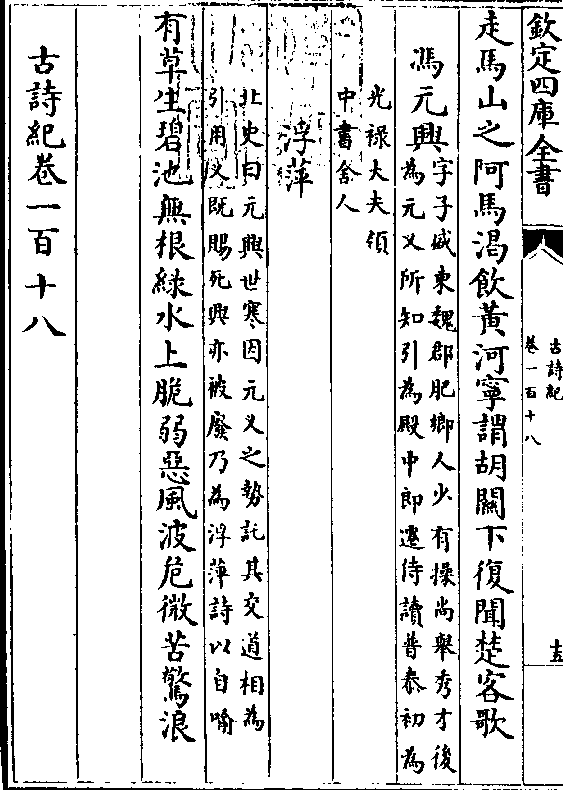 欽定四庫全書
古詩紀
卷一百十八
十五
走馬山之阿馬渴飲黃河寧謂胡關下復聞楚客歌
馮元興
字子盛東魏郡肥鄉人少有操尚舉秀才後
為元乂所知引為殿中郎遷侍讀普泰初為
光祿大夫領
中書舍人
浮萍
北史曰元興世寒因元乂之勢託其交道相為
引用乂既賜死興亦被廢乃為浮萍詩以自喻
有草生碧池無根綠水上脆弱惡風波危微苦驚浪
古詩紀卷一百十八